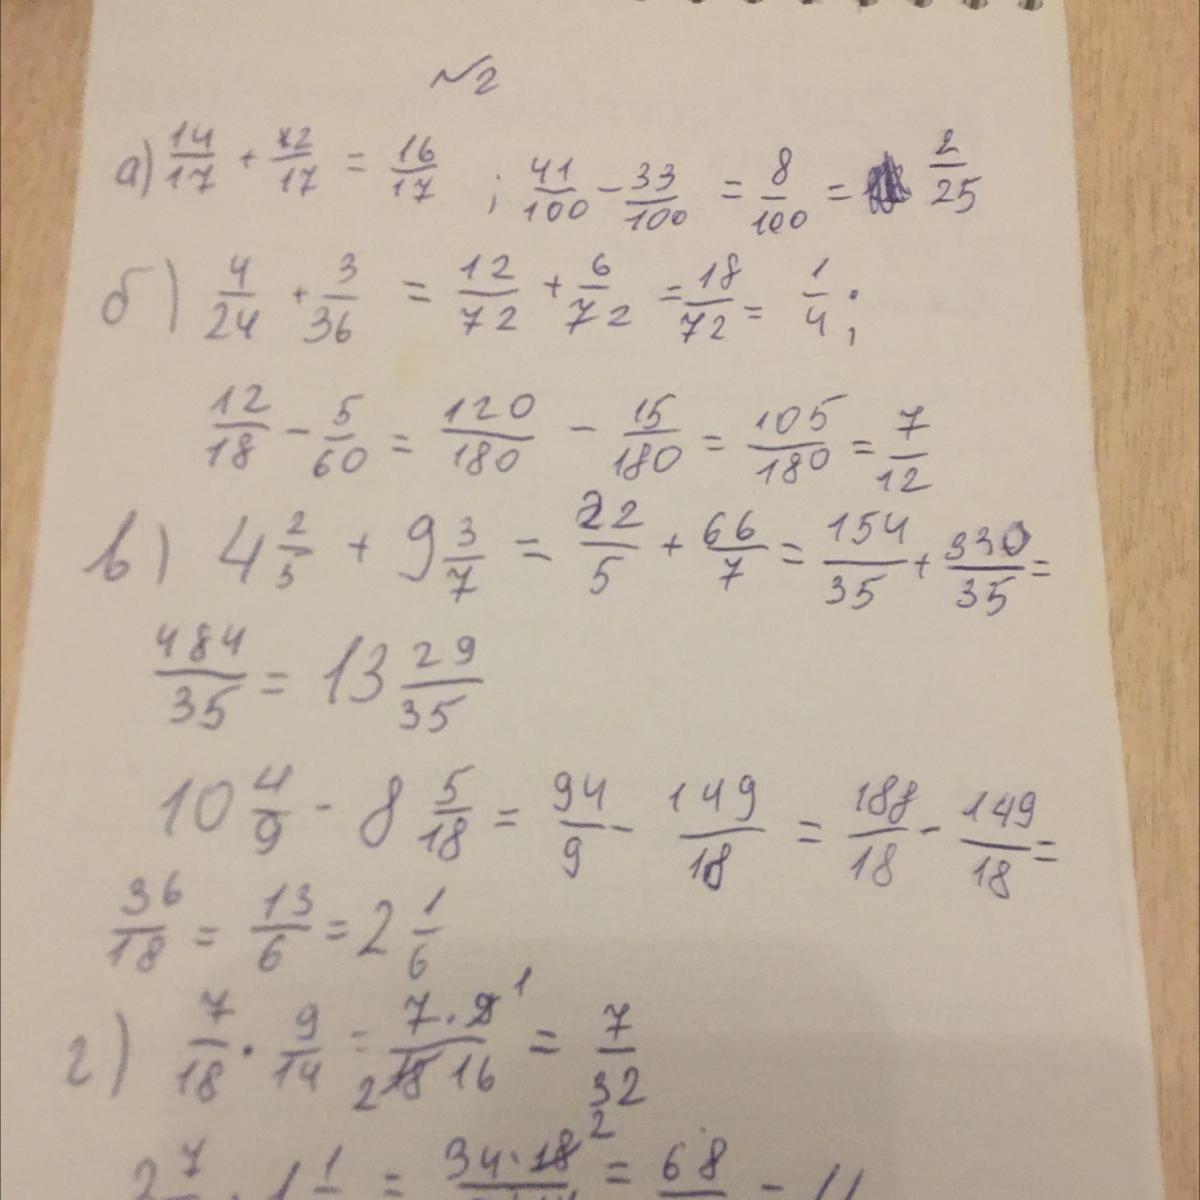 №2
а) 14/17 + 2/17 = 16/17 ; 41/100 - 33/100 = 8/100 = 2/25
б) 4/24 + 3/36 = 12/72 + 6/72 = 18/72 = 1/4 ;
12/18 - 5/60 = 120/180 - 15/180 = 105/180 = 7/12
в) 4 2/5 + 9 3/7 = 22/5 + 66/7 = 154/35 + 330/35 =
484/35 = 13 29/35
10 4/9 - 8 5/18 = 94/9 - 149/18 = 188/18 - 149/18 =
36/18 = 13/6 = 2 1/6
г) 7/18 · 9/14 = 7·9 1/2 18 16 = 7/32
2 7 · 1 1 = 34·18 2 = 68